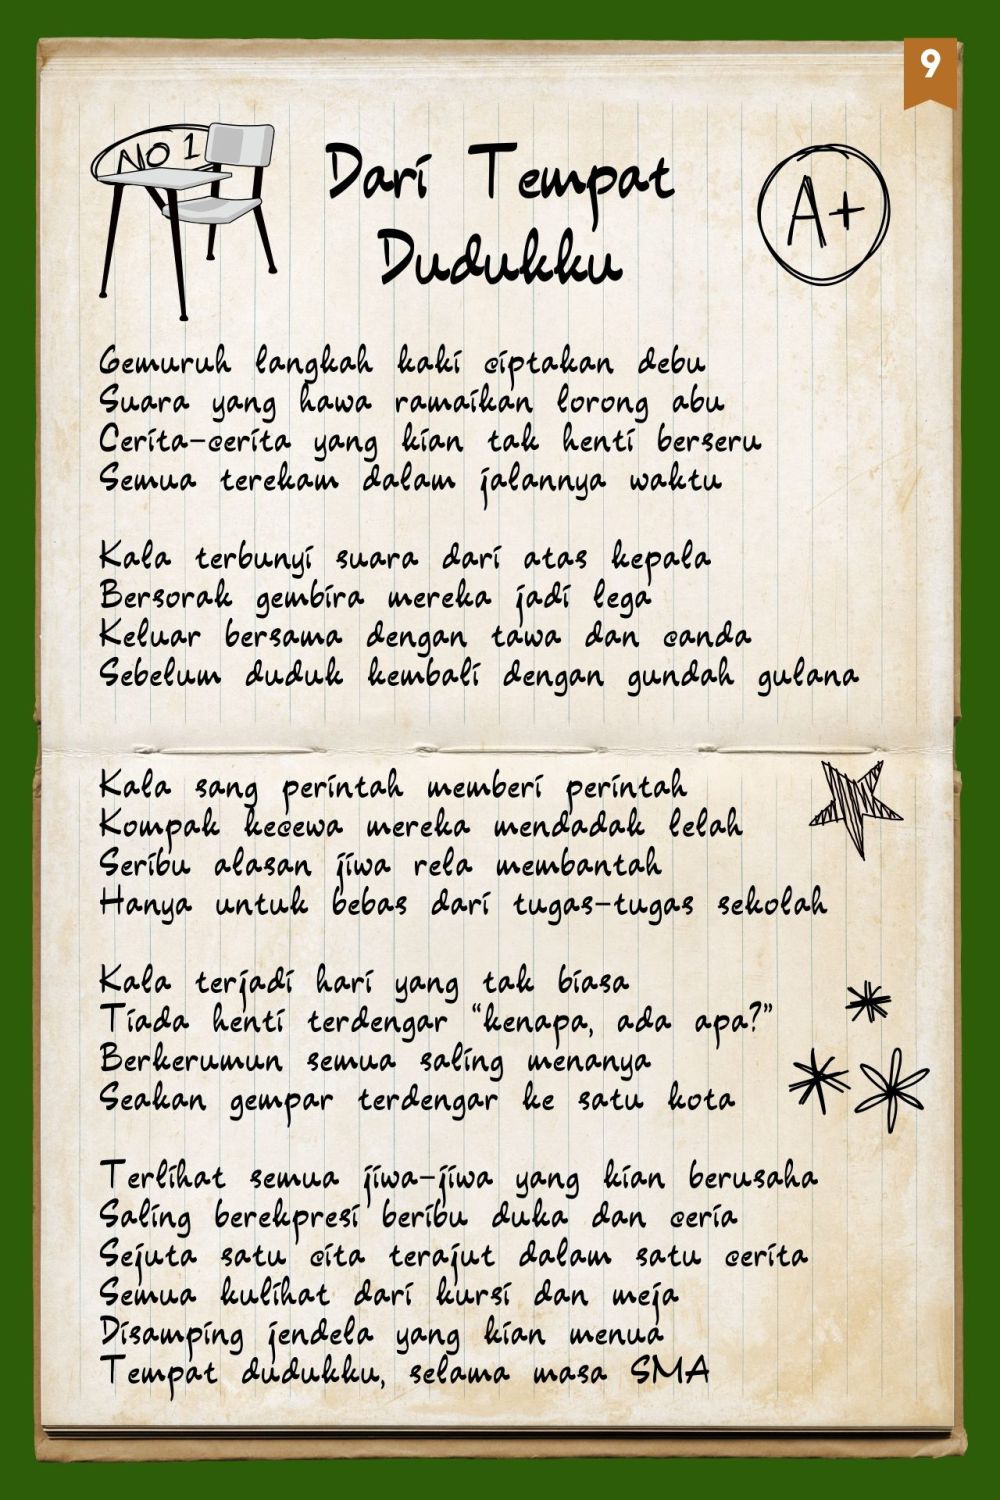 9
NO 1
Dari Tempat
Dudukku
A+
Gemuruh langkah kaki ciptakan debu
Suara yang hawa ramaikan lorong abu
Cerita-cerita yang kian tak henti berseru
Semua terekam dalam jalannya waktu
Kala terbunyi suara dari atas kepala
Bersorak gembira mereka jadi lega
Keluar bersama dengan tawa dan canda
Sebelum duduk kembali dengan gundah gulana
Kala sang perintah memberi perintah
Kompak kecewa mereka mendadak lelah
Seribu alasan jiwa rela membantah
Hanya untuk bebas dari tugas-tugas sekolah
Kala terjadi hari yang tak biasa
Tiada henti terdengar “kenapa, ada apa?”
Berkerumun semua saling menanya
Seakan gempar terdengar ke satu kota
Terlihat semua jiwa-jiwa yang kian berusaha
Saling berekpresi beribu duka dan ceria
Sejuta satu cita terajut dalam satu cerita
Semua kulihat dari kursi dan meja
Disamping jendela yang kian menua
Tempat dudukku, selama masa SMA